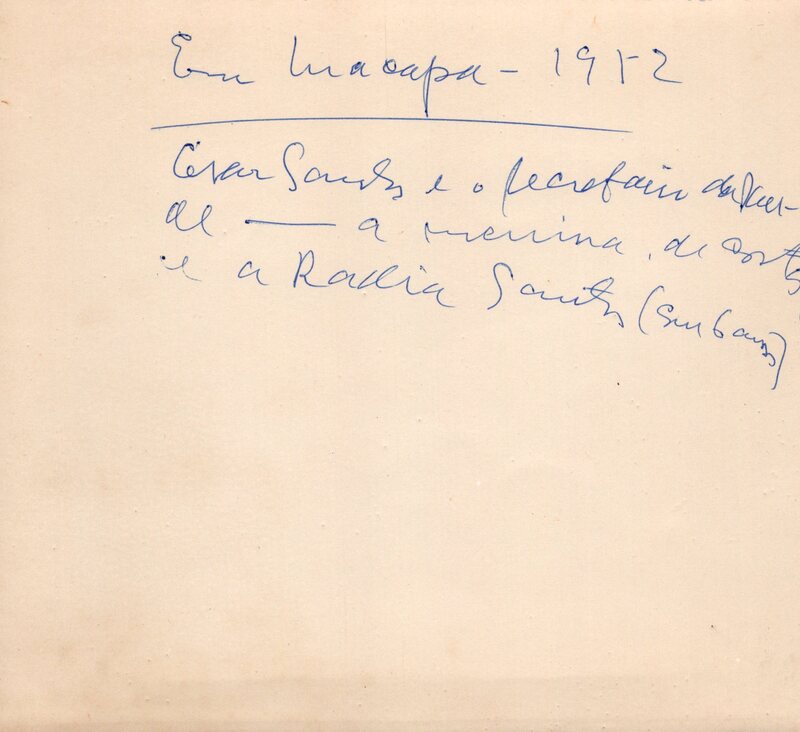 Em Macapa - 1952
Cesar Santos e o secretario da
de — a menina, de costas
e a Radia Santos (em baixo)